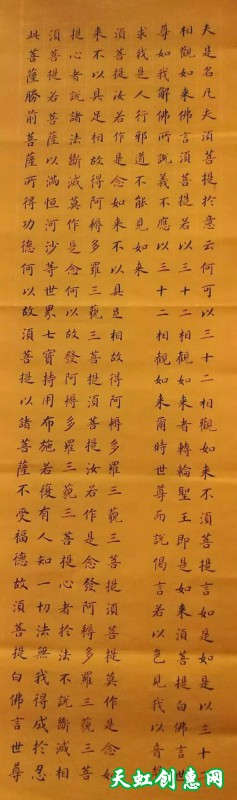 夫是名凡夫須菩提於意云何可以三十二相觀如来不須菩提言如是如是以三十二
相觀如来佛言須菩提若以三十二相觀如来者轉輪聖王即是如来須菩提白佛言世
尊如我解佛所說義不應以三十二相觀如来爾時世尊而說偈言若以色見我以音聲
求我是人行邪道不能見如来
須菩提汝若作是念如来不以具足相故得阿耨多羅三藐三菩提須菩提莫作是念如
来不以具足相故得阿耨多羅三藐三菩提須菩提汝若作是念發阿耨多羅三藐三菩
提心者說諸法斷滅莫作是念何以故發阿耨多羅三藐三菩提心者於法不說斷滅相
須菩提若菩薩以滿恒河沙等世界七寶持用布施若復有人知一切法無我得成於忍
此菩薩勝前菩薩所得功德何以故須菩提以諸菩薩不受福德故須菩提白佛言世尊
天虹创意网